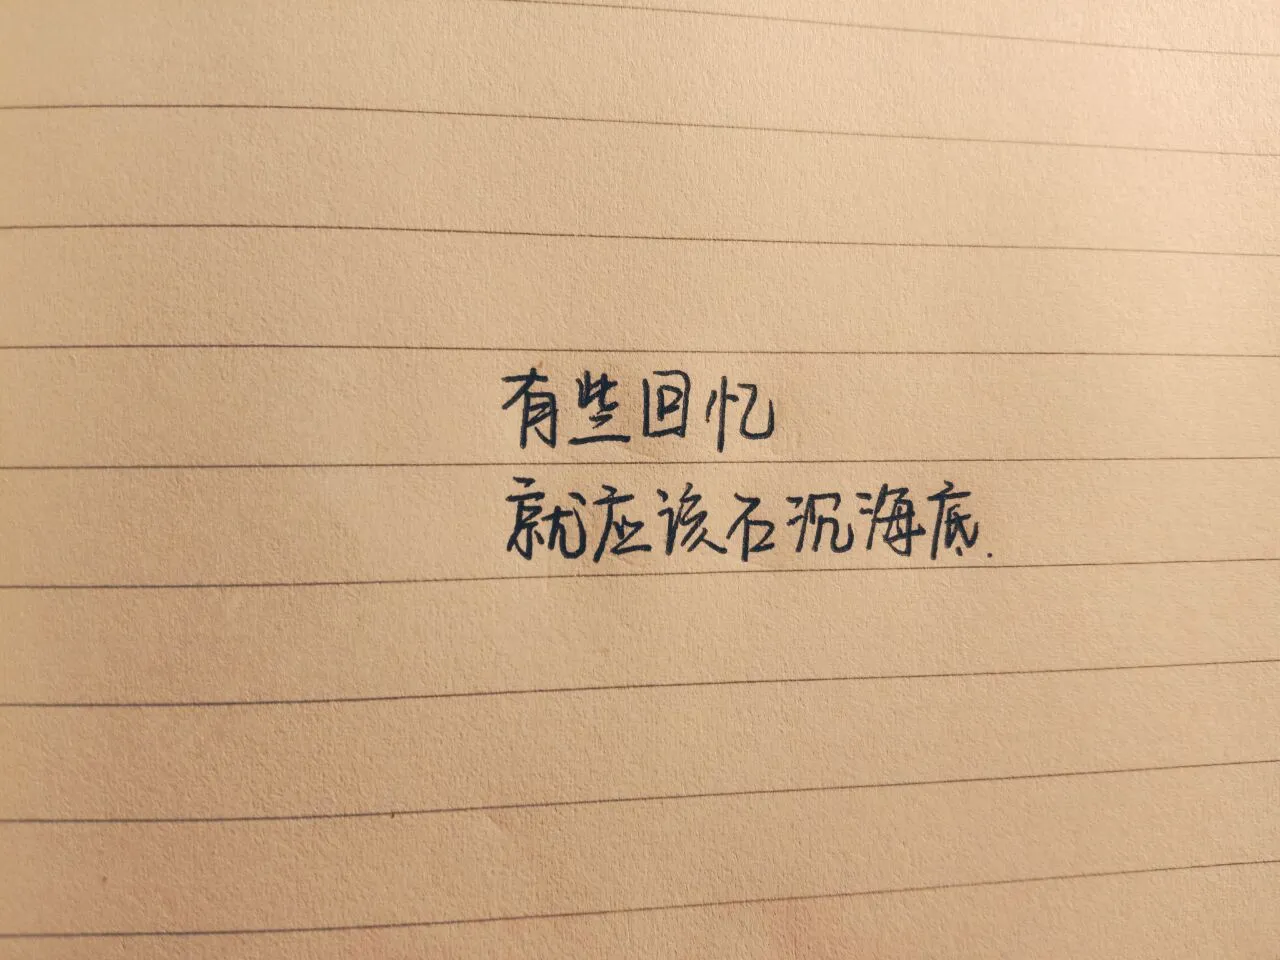 有些回忆
就应该石沉海底.